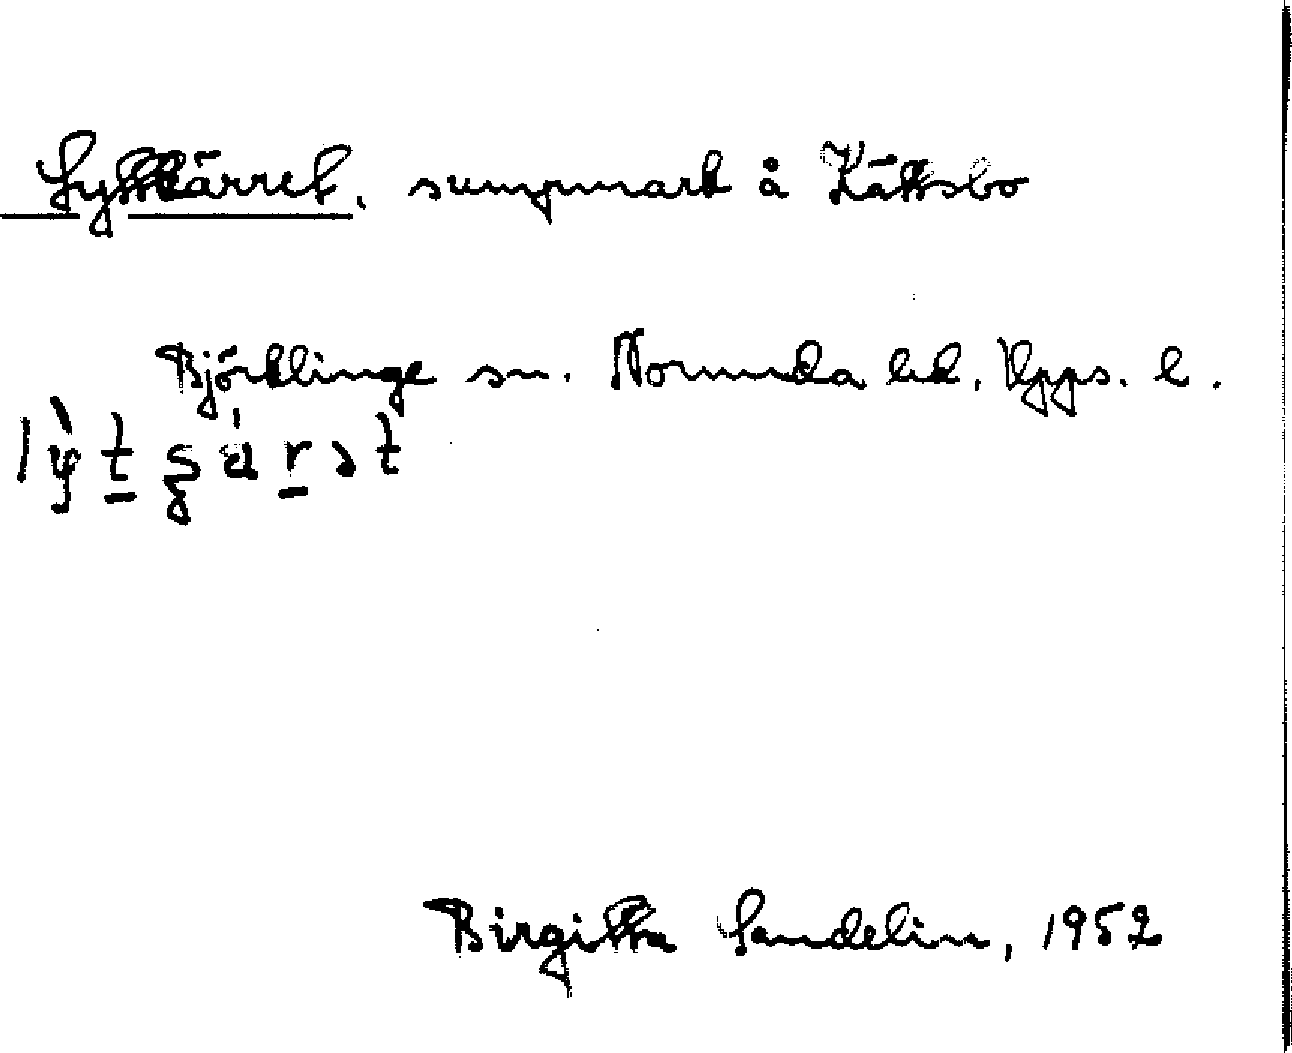 Lyttkärret, sumpmark å Kättsbo
Björklinge sn. Norunda hd. Upps. l.
Birgitta Sandelin, 1952